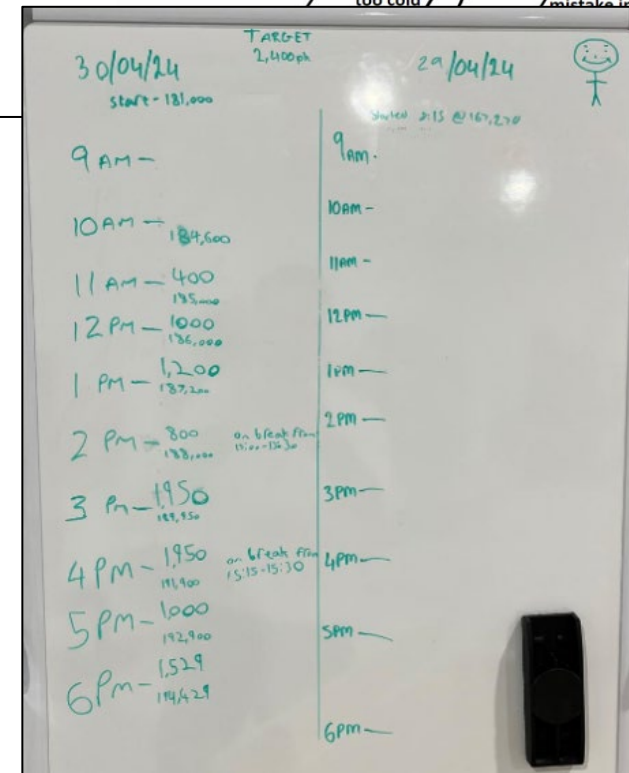 too cold
mistake in
TARGET
2,400ph
30/04/24
start - 181,000
9 AM -
10 AM -
184,600
11 AM - 400
185,000
12 PM - 1000
186,000
1 PM - 1,200
187,200
2 PM - 800
188,000
on break from
3 Pm - 1,950
189,950
4 PM - 1,950
191,900
on break from
15:15-15:30
5 PM - 1,000
192,900
6 Pm - 1,529
194,429
29/04/24
@ 167,270
9AM -
10AM -
11AM -
12PM -
1PM -
2PM -
3PM -
4PM -
5PM -
6PM -